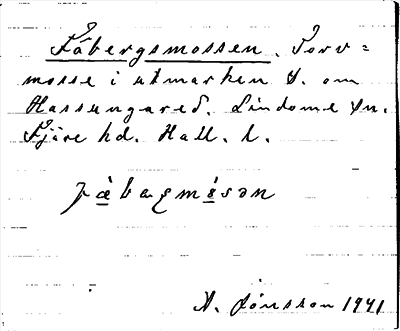 Fåbergsmossen. Torv=
mosse i utmarken S. om
Hassungared. Lindome sn.
Fjäre hd. Hall. l.
fàbaɽmɜ̀sən
A. Jónsson 1941